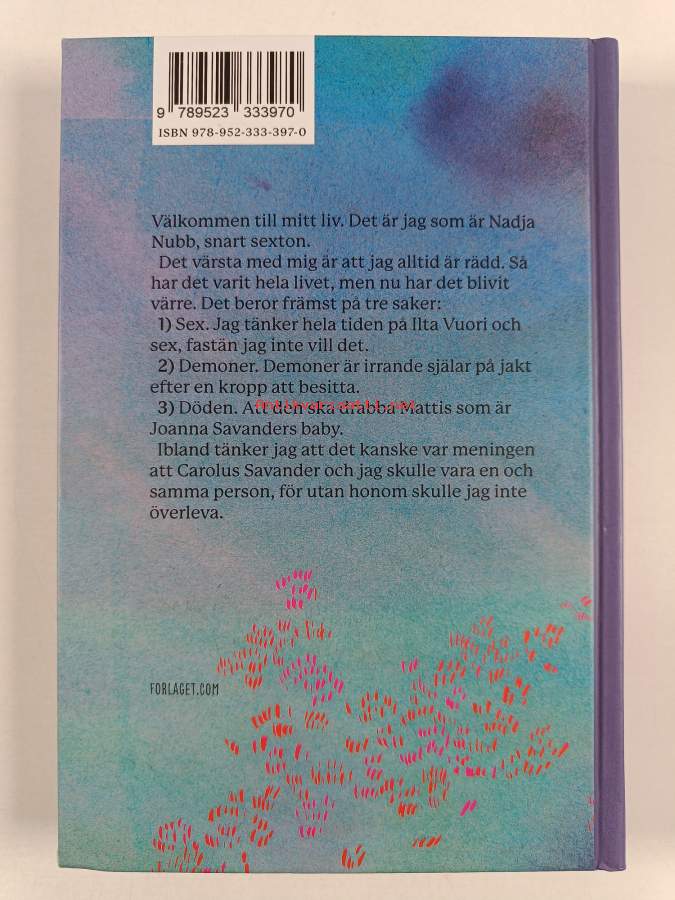 9 789523 333970
ISBN 978-952-333-397-0
Välkommen till mitt liv. Det är jag som är Nadja
Nubb, snart sexton.
Det värsta med mig är att jag alltid är rädd. Så
har det varit hela livet, men nu har det blivit
värre. Det beror främst på tre saker:
1) Sex. Jag tänker hela tiden på Ilta Vuori och
sex, fastän jag inte vill det.
2) Demoner. Demoner är irrande själar på jakt
efter en kropp att besitta.
3) Döden. Att den ska drabba Mattis som är
Joanna Savanders baby.
Ibland tänker jag att det kanske var meningen
att Carolus Savander och jag skulle vara en och
samma person, för utan honom skulle jag inte
överleva.
FORLAGET.COM